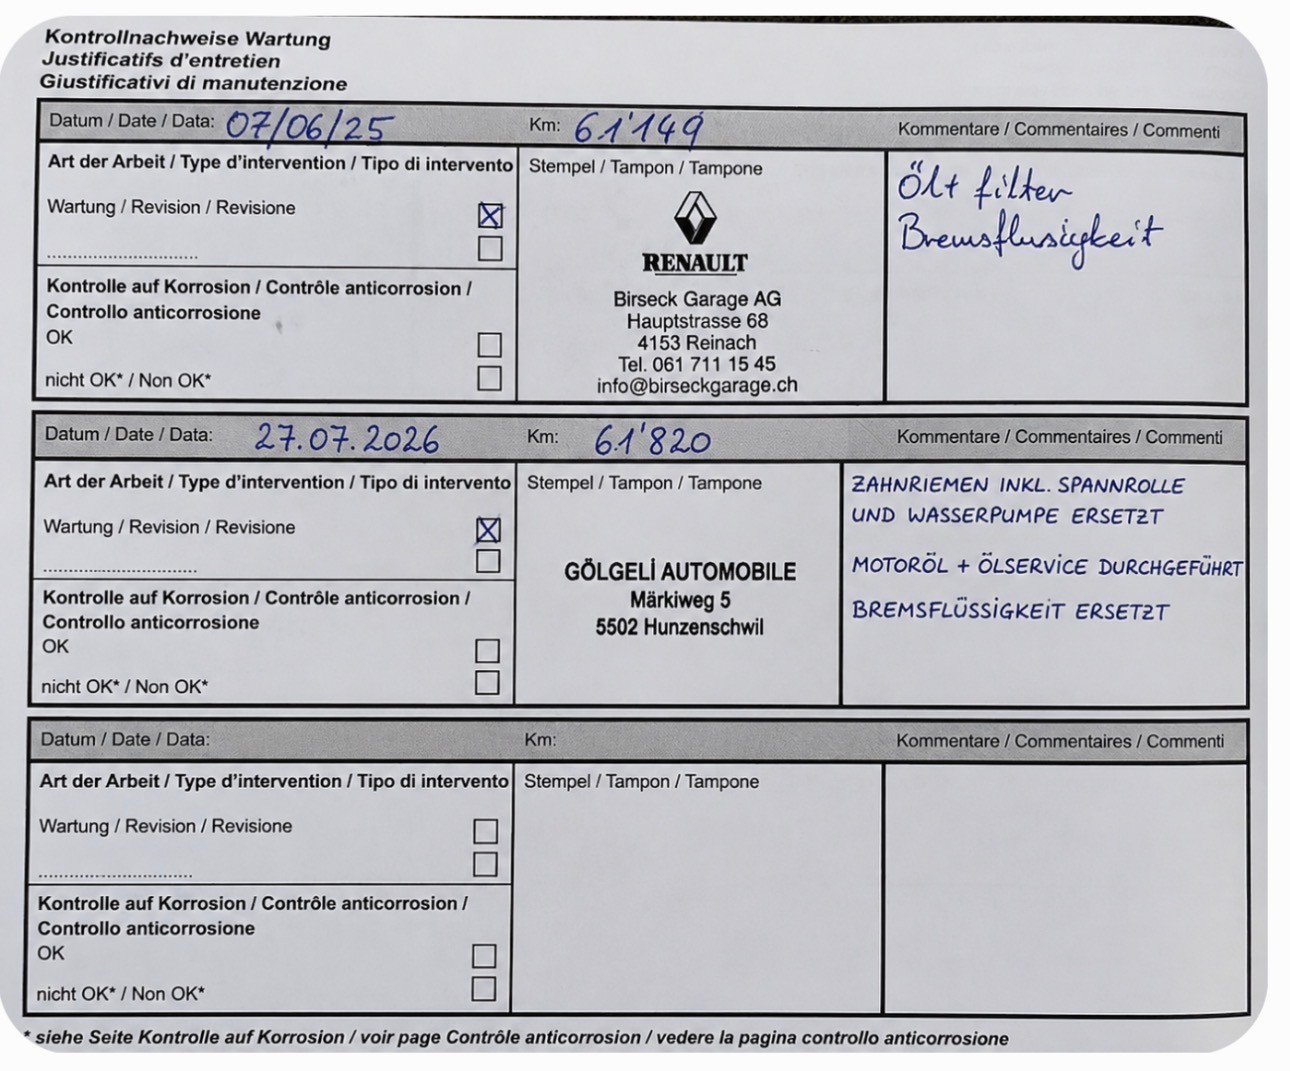 Kontrollnachweise Wartung
Justificatifs d'entretien
Giustificativi di manutenzione
Datum / Date / Data: 07/06/25 Km: 61'149 Kommentare / Commentaires / Commenti
Art der Arbeit / Type d'intervention / Tipo di intervento
Wartung / Revision / Revisione
Kontrolle auf Korrosion / Contrôle anticorrosion /
Controllo anticorrosione
OK
nicht OK* / Non OK*
Stempel / Tampon / Tampone
RENAULT
Birseck Garage AG
Hauptstrasse 68
4153 Reinach
Tel. 061 711 15 45
info@birseckgarage.ch
Öl+ filter
Bremsflusigkeit
Datum / Date / Data: 27.07.2026 Km: 61'820 Kommentare / Commentaires / Commenti
Art der Arbeit / Type d'intervention / Tipo di intervento
Wartung / Revision / Revisione
Kontrolle auf Korrosion / Contrôle anticorrosion /
Controllo anticorrosione
OK
nicht OK* / Non OK*
Stempel / Tampon / Tampone
GÖLGELİ AUTOMOBILE
Märkiweg 5
5502 Hunzenschwil
ZAHNRIEMEN INKL. SPANNROLLE
UND WASSERPUMPE ERSETZT
MOTORÖL + ÖLSERVICE DURCHGEFÜHRT
BREMSFLÜSSIGKEIT ERSETZT
Datum / Date / Data: Km: Kommentare / Commentaires / Commenti
Art der Arbeit / Type d'intervention / Tipo di intervento
Wartung / Revision / Revisione
Kontrolle auf Korrosion / Contrôle anticorrosion /
Controllo anticorrosione
OK
nicht OK* / Non OK*
Stempel / Tampon / Tampone
* siehe Seite Kontrolle auf Korrosion / voir page Contrôle anticorrosion / vedere la pagina controllo anticorrosione